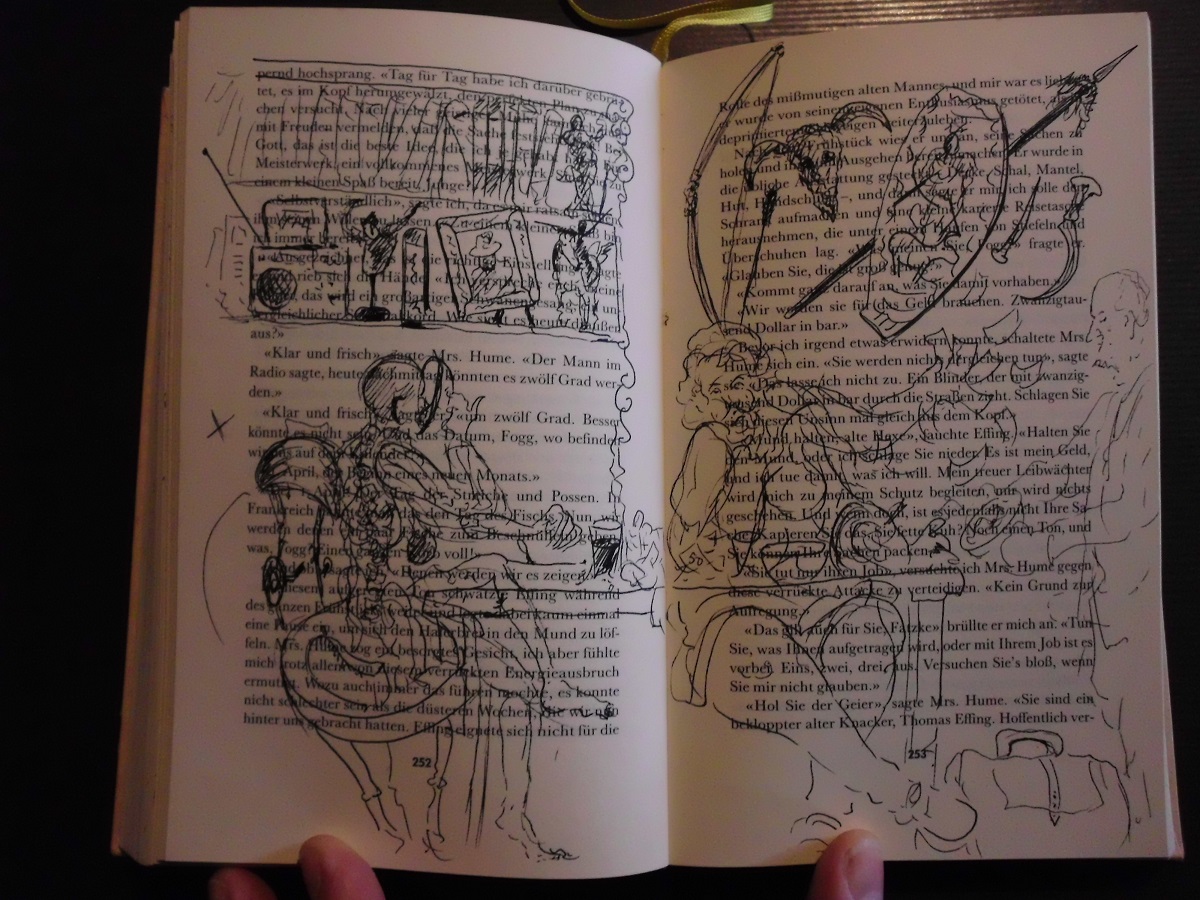 pernd hochsprang. «Tag für Tag habe ich darüber gebrü-
tet, es im Kopf herumgewälzt, den
chen versucht. Nach
mit Freuden vermelden, daß die Sache
Gott, das ist die beste Idee, die ich
Meisterwerk, ein vollkommenes
einem kleinen Spaß bereit, Junge?»
«Selbstverständlich», sagte ich, da
ihm seinen Willen zu lassen. «Zu einem kleinen Spaß bin
ich immer bereit
«Ausgezeichnet, sagte
und rieb sich die Hände.
das wird ein großartiger Schwanengesang, ein un-
vergleichlicher
aus?»
«Klar und frisch», sagte Mrs. Hume. «Der Mann im
Radio sagte, heute nachmittag könnten es zwölf Grad wer-
den.»
«Klar und frisch», sagte er, «um zwölf Grad. Besser
könnte es nicht sein. Und das Datum, Fogg, wo befinden
wir uns auf dem Kalender?»
April, der Beginn eines neuen Monats.»
Tag der Streiche und Possen. In
Frankreich das den Tag des Fischs. Nun, wir
werden denen ein paar Fische zum Beschnüffeln geben,
was, Fogg? Einen ganzen Korb voll!»
sagte ich. «Denen werden wir es zeigen.»
diesem aufgeregten Ton schwatzte Effing während
des ganzen Frühstücks weiter und legte dabei kaum einmal
eine Pause ein, um sich den Haferbrei in den Mund zu löf-
feln. Mrs. Hume zog ein besorgtes Gesicht, ich aber fühlte
mich trotz allem von diesem verrückten Energieausbruch
ermutigt. Wozu auch immer das führen mochte, es konnte
nicht schlechter sein als die düsteren Wochen, die wir nun
hinter uns gebracht hatten. Effing eignete sich nicht für die
252
Rolle des mißmutigen alten Mannes, und mir war es lieber,
er wurde von seinem eigenen Enthusiasmus getötet, als
deprimiertem Schweigen weiterzuleben.
Nach dem Frühstück wies er uns an, seine Sachen zu
holen und ihn zum Ausgehen bereit zu machen. Er wurde in
die übliche Ausstattung gesteckt – Decke, Schal, Mantel,
Hut, Handschuhe –, und dann sagte er mir, ich solle den
Schrank aufmachen und eine kleine karierte Reisetasche
herausnehmen, die unter einem Haufen von Stiefeln und
Überschuhen lag. «Was meinen Sie, Fogg?» fragte er.
«Glauben Sie, die ist groß genug?»
«Kommt ganz darauf an, was Sie damit vorhaben.»
«Wir werden sie für das Geld brauchen. Zwanzigtau-
send Dollar in bar.»
Bevor ich irgend etwas erwidern konnte, schaltete Mrs.
Hume sich ein. «Sie werden nichts dergleichen tun», sagte
sie. «Das lasse ich nicht zu. Ein Blinder, der mit zwanzig-
tausend Dollar in bar durch die Straßen zieht. Schlagen Sie
sich diesen Unsinn mal gleich aus dem Kopf.»
«Mund halten, alte Hexe», fauchte Effing. «Halten Sie
den Mund, oder ich schlage Sie nieder. Es ist mein Geld,
und ich tue damit, was ich will. Mein treuer Leibwächter
wird mich zu meinem Schutz begleiten, mir wird nichts
geschehen. Und wenn doch, ist es jedenfalls nicht Ihre Sa-
che. Kapieren Sie das, Sie fette Kuh? Noch einen Ton, und
Sie können Ihre Sachen packen.»
«Sie tut nur ihren Job», versuchte ich Mrs. Hume gegen
diese verrückte Attacke zu verteidigen. «Kein Grund zur
Aufregung.»
«Das gilt auch für Sie, Fatzke», brüllte er mich an. «Tun
Sie, was Ihnen aufgetragen wird, oder mit Ihrem Job ist es
vorbei. Eins, zwei, drei, aus. Versuchen Sie's bloß, wenn
Sie mir nicht glauben.»
«Hol Sie der Geier», sagte Mrs. Hume. «Sie sind ein
bekloppter alter Knacker, Thomas Effing. Hoffentlich ver-
253
50